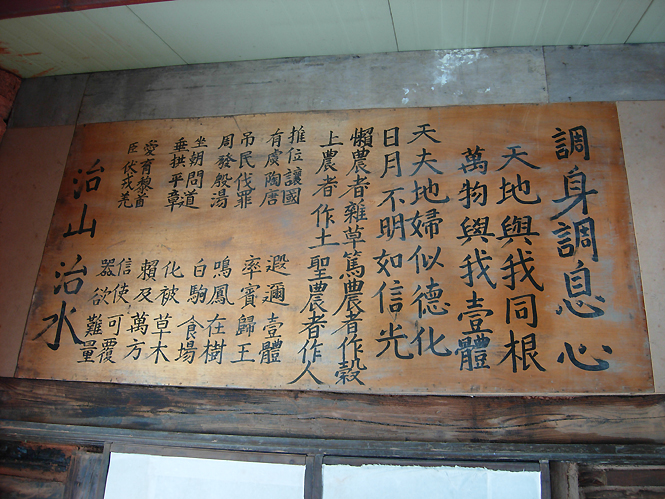 調身調息心
天地與我同根
萬物與我壹體
天夫地婦似德化
日月不明如信光
懶農者雜草篤農者作穀
上農者作土聖農者作人
推位讓國
有虞陶唐
吊民伐罪
周發殷湯
坐朝問道
垂拱平章
愛育黎首
臣伏戎羌
遐邇壹體
率賓歸王
鳴鳳在樹
白駒食場
化被草木
賴及萬方
信使可覆
器欲難量
治山治水